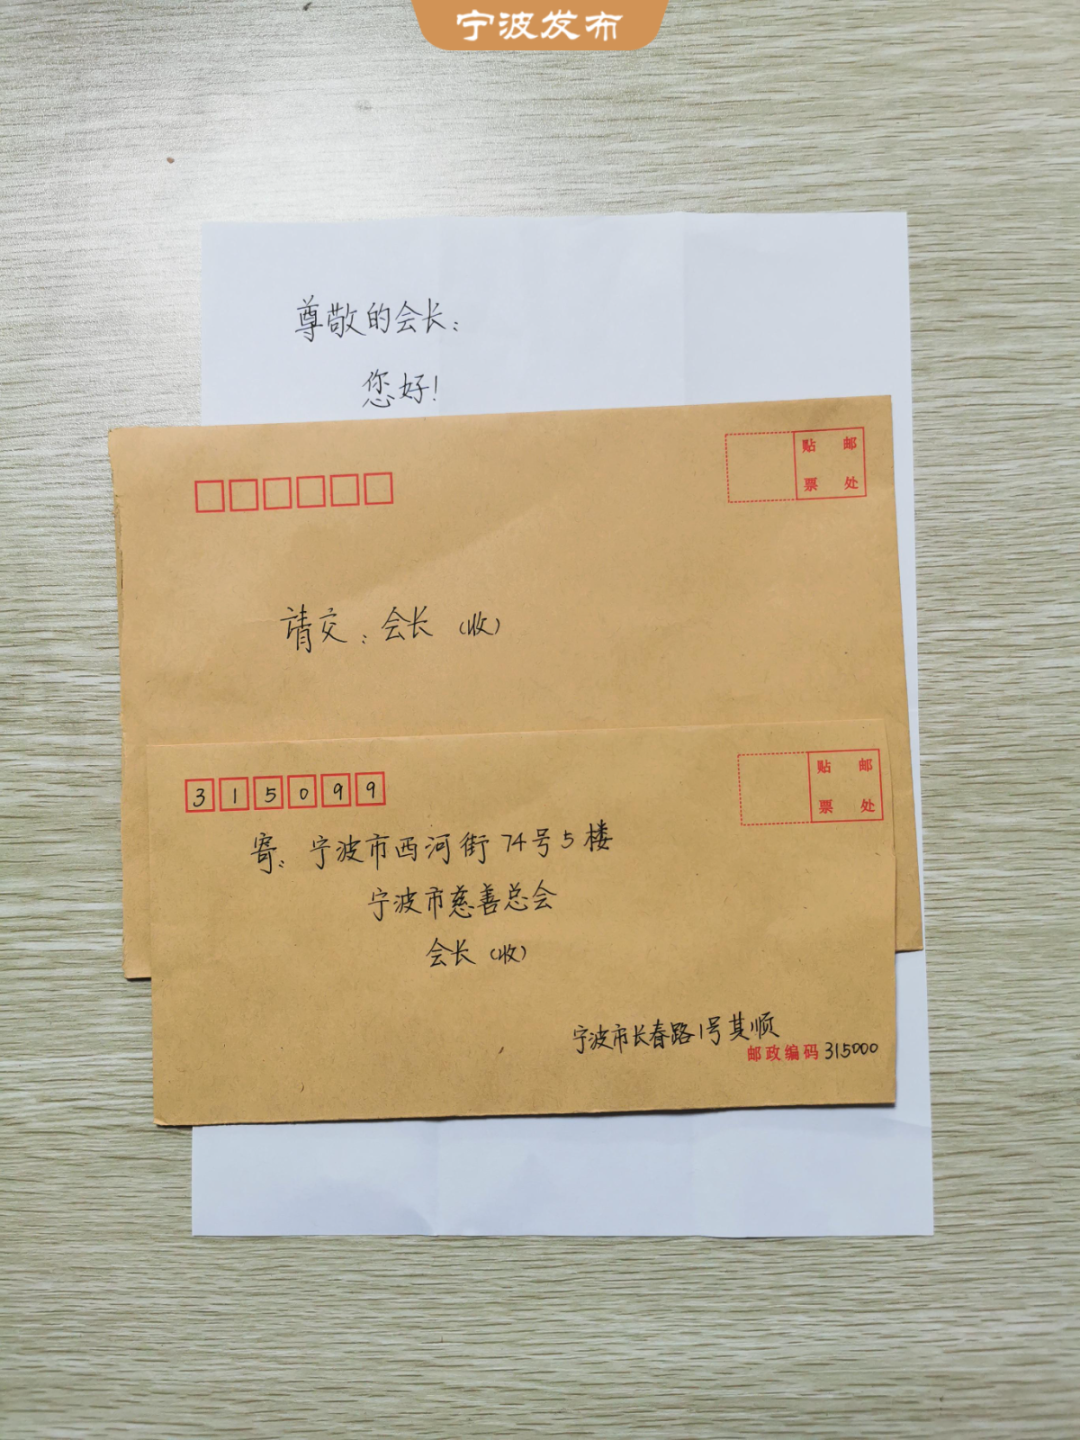 宁波发布
尊敬的会长：
您好！
贴 邮
票 处
请交：会长（收）
315099
贴 邮
票 处
寄：宁波市西河街74号5楼
宁波市慈善总会
会长（收）
宁波市长春路1号其顺
邮政编码 315000